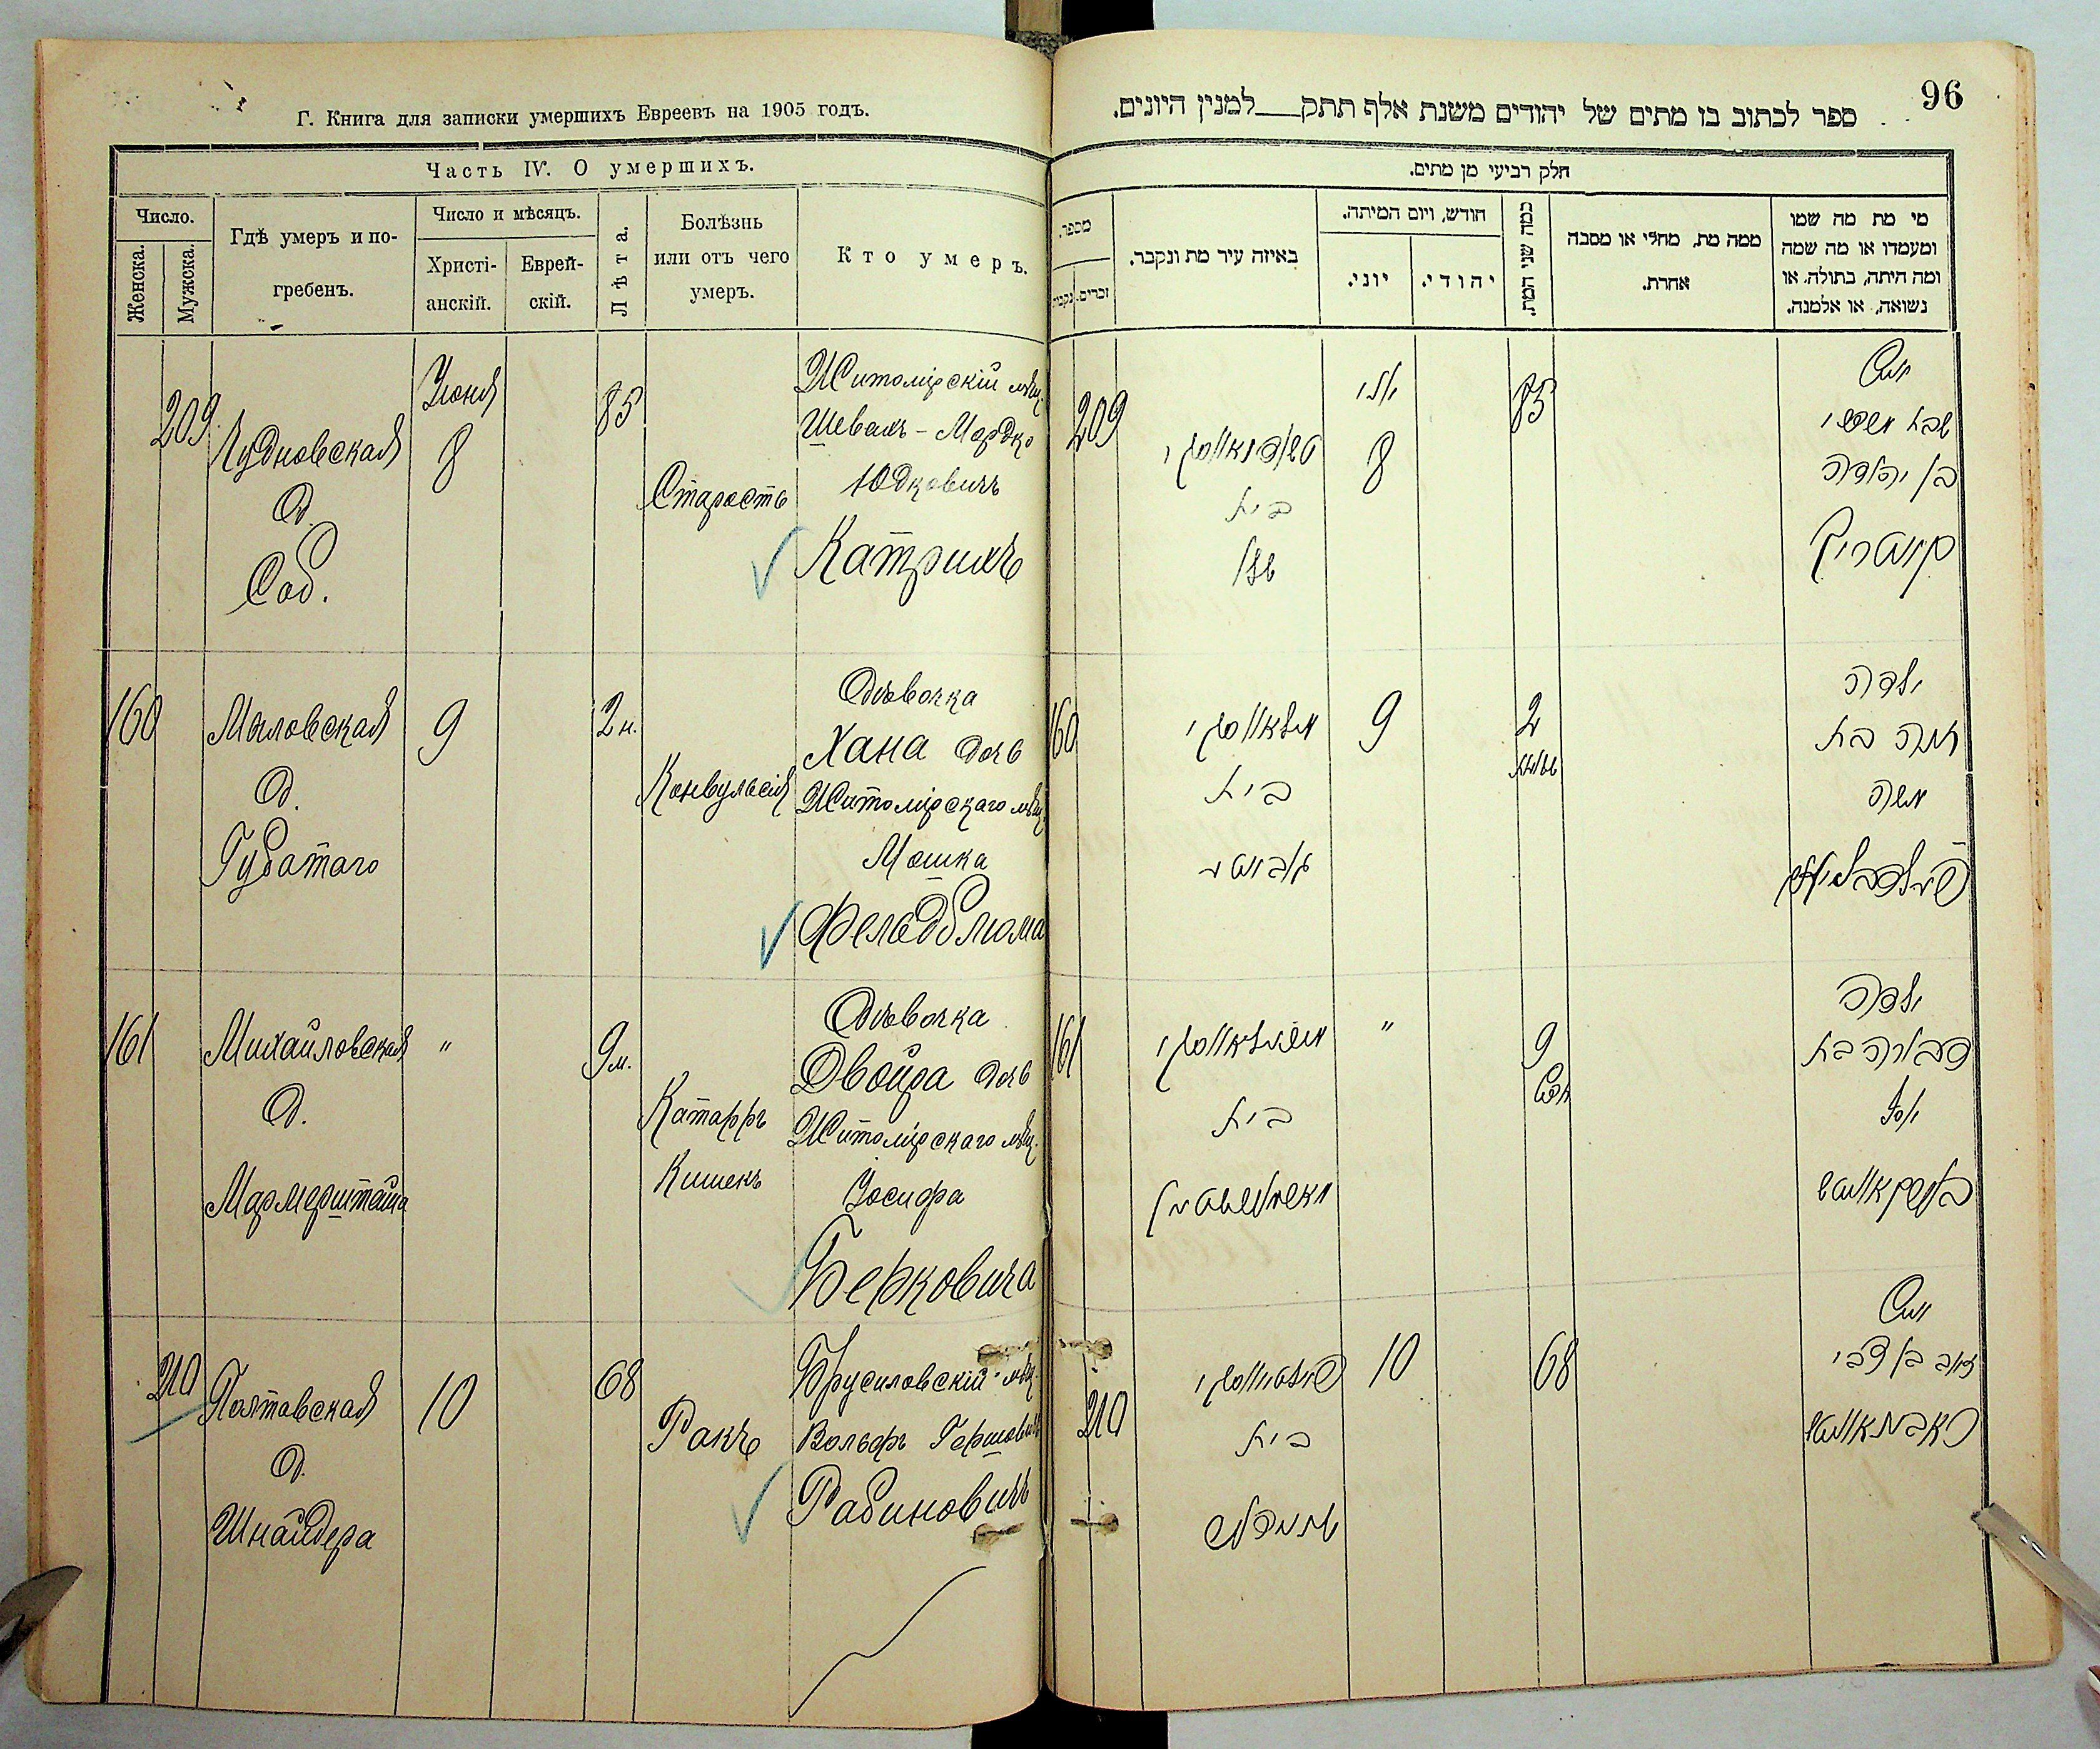 Г. Книга для записки умершихъ Евреевъ на 1905 годъ.
Часть IV. О умершихъ.
Число.
Женска.
Мужска.
Гдѣ умеръ и по-
гребенъ.
Число и мѣсяцъ.
Христі-
анскій.
Еврей-
скій.
Лѣта.
Болѣзнь
или отъ чего
умеръ.
Кто умеръ.
209
Чудновская
д.
Соб.
Іюня
8
85
Старость
Житомірскій мѣщ.
Шевахъ-Мордко
Юдковичъ
Катрихъ
160
Маловская
д.
Губатаго
9
2 н.
Конвульсія
Дѣвочка
Хана дочь
Житомірскаго мѣщ.
Мошка
Фельдблюма
161
Михайловская
д.
Мармерштейна
"
9 м.
Катарръ
Кишекъ
Дѣвочка
Двойра дочь
Житомірскаго мѣщ.
Іосифа
Берковича
210
Полтавская
д.
Шнайдера
10
68
Ракъ
Брусиловскій мѣщ.
Вольфъ Гершовичъ
Рабиновичъ
96
ספר לכתוב בו מתים של יהודים משנת אלף תתק__למנין היונים.
חלק רביעי מן מתים.
מי מת מה שמו
ומעמדו או מה שמה
ומה היתה, בתולה, או
נשואה, או אלמנה.
ממה מת, מחלי או מסבה
אחרת.
כמה שני המת.
חודש, ויום המיתה.
יהודי.
יוני.
באיזה עיר מת ונקבר.
מספר.
זכרים.
נקבות
209
יוני
8
85
בית
בן יהודה
קאטריך
160
9
2
בית
ילדה
חנה בת
משה
161
"
9
בית
ילדה
דבורה בת
יוסף
בערקאוויטש
210
10
68
בית
זאב בן צבי
ראבינאוויטש